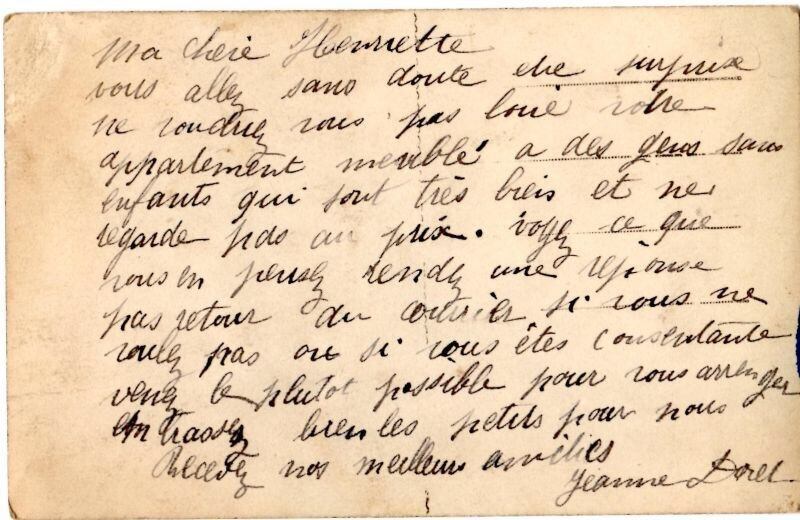 Ma chère Henriette
vous allez sans doute etre surprise
ne voudriez vous pas loué votre
appartement meublé a des gens sans
enfants qui sont très bien et ne
regarde pas au prix. voyez ce que
vous en pensez rendez une réponse
pas retour du courrier si vous ne
voulez pas ou si vous êtes consentante
venez le plutot possible pour vous arrenger
embrassez bien les petits pour nous
Recevez nos meilleurs amitiés
Jeanne Dorel